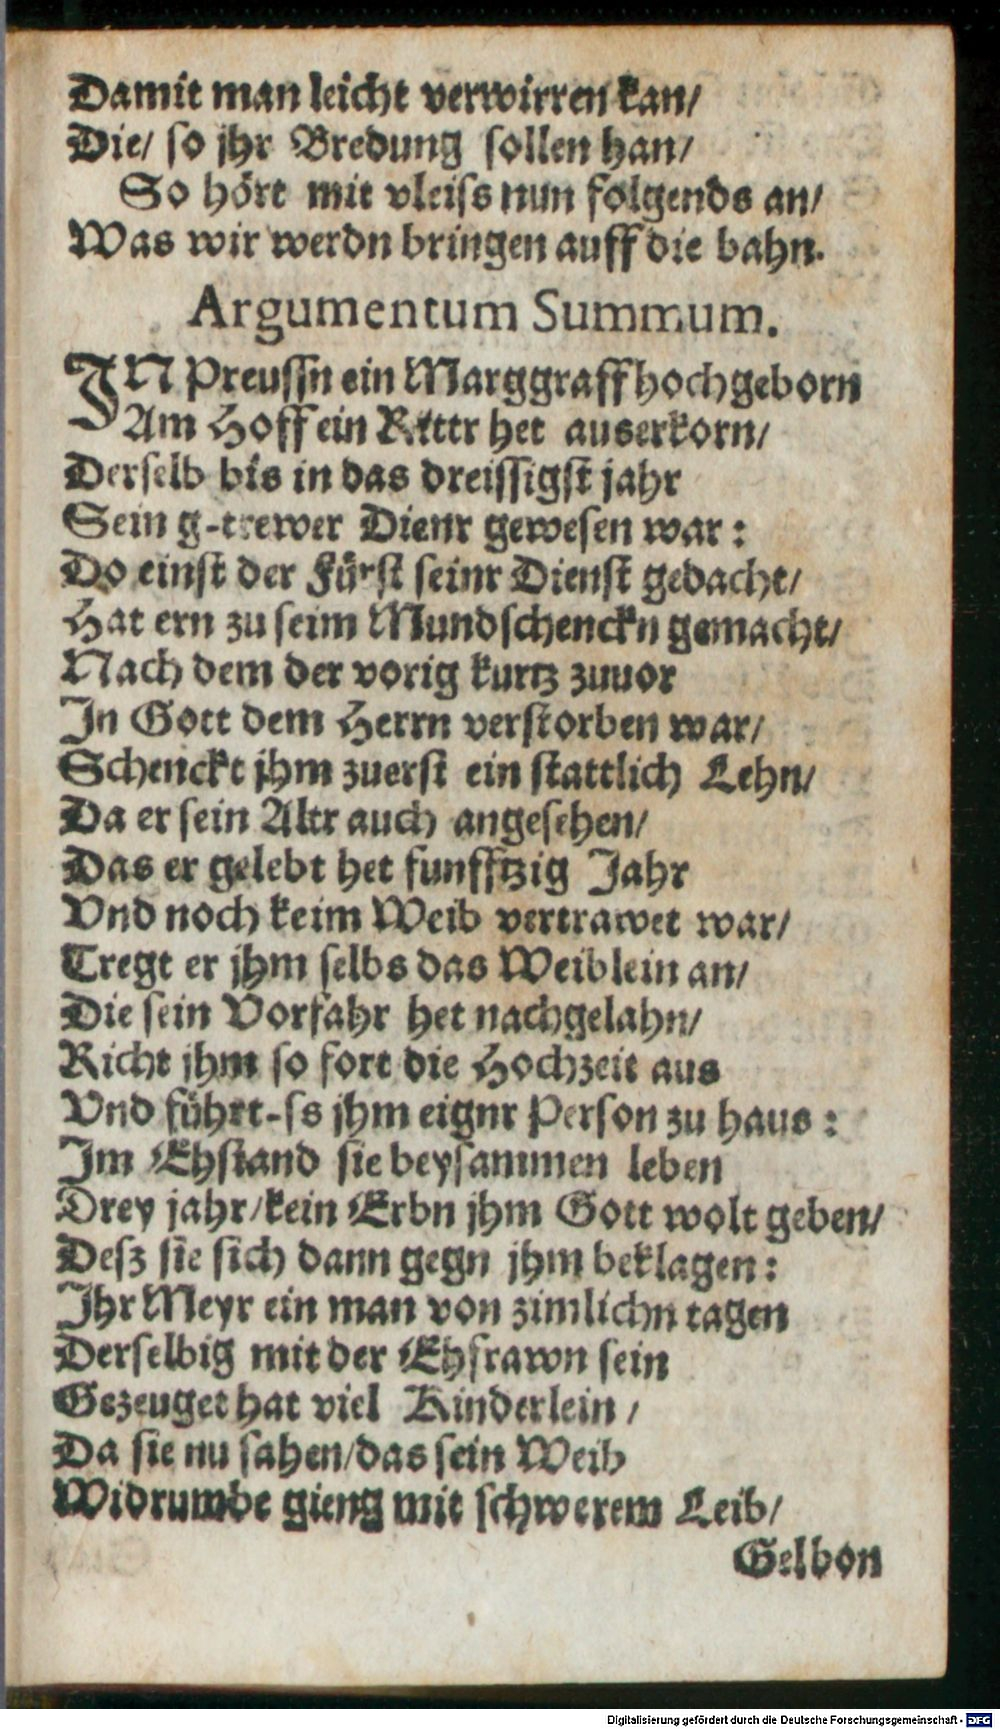 Damit man leicht verwirren kan/
Die/ so jhr Bredung sollen han/
So hört mit vleiss nun folgends an/
Was wir werdn bringen auff die bahn.
Argumentum Summum.
IN Preussn ein Marggraff hochgeborn
Am Hoff ein Rittr het auserkorn/
Derselb bis in das dreissigst jahr
Sein g-trewer Dienr gewesen war:
Do einst der Fürst seinr Dienst gedacht/
Hat ern zu seim Mundschenckn gemacht/
Nach dem der vorig kurtz zuuor
In Gott dem Herrn verstorben war/
Schenckt jhm zuerst ein stattlich Lehn/
Da er sein Altr auch angesehen/
Das er gelebt het funfftzig Jahr
Vnd noch keim Weib vertrawet war/
Tregt er jhm selbs das Weiblein an/
Die sein Vorfahr het nachgelahn/
Richt jhm so fort die Hochzeit aus
Vnd führt-ss jhm eignr Person zu haus:
Im Ehstand sie beysammen leben
Drey jahr/kein Erbn jhm Gott wolt geben/
Desz sie sich dann gegn jhm beklagen:
Ihr Meyr ein man von zimlichn tagen
Derselbig mit der Ehfrawn sein
Gezeuget hat viel Kinderlein/
Da sie nu sahen/das sein Weib
Widrumbe gieng mit schwerem Leib/
Gelbon
Digitalisierung gefördert durch die Deutsche Forschungsgemeinschaft - DFG